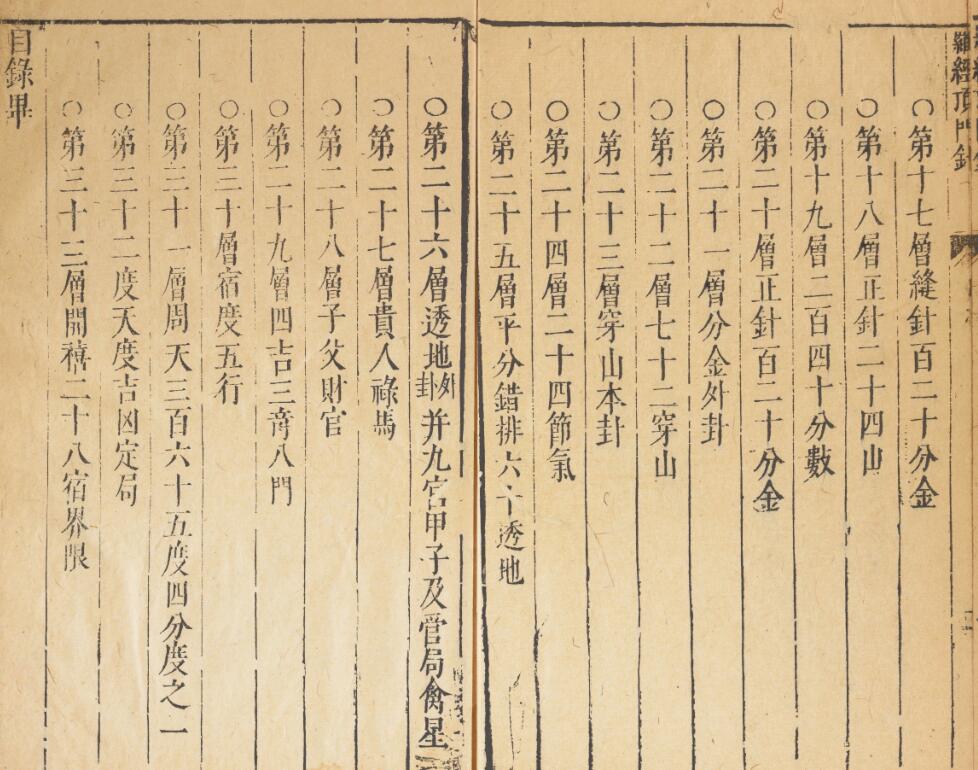 羅經頂門針
○第十七層縫針百二十分金
○第十八層正針二十四山
○第十九層二百四十分數
○第二十層正針百二十分金
○第二十一層分金外卦
○第二十二層七十二穿山
○第二十三層穿山本卦
○第二十四層二十四節氣
○第二十五層平分錯排六十透地
○第二十六層透地外卦并九宮甲子及營局禽星
○第二十七層貴人祿馬
○第二十八層子父財官
○第二十九層四吉三竒八門
○第三十層宿度五行
○第三十一層周天三百六十五度四分度之一
○第三十二度天度吉凶定局
○第三十三層開禧二十八宿界限
目錄畢